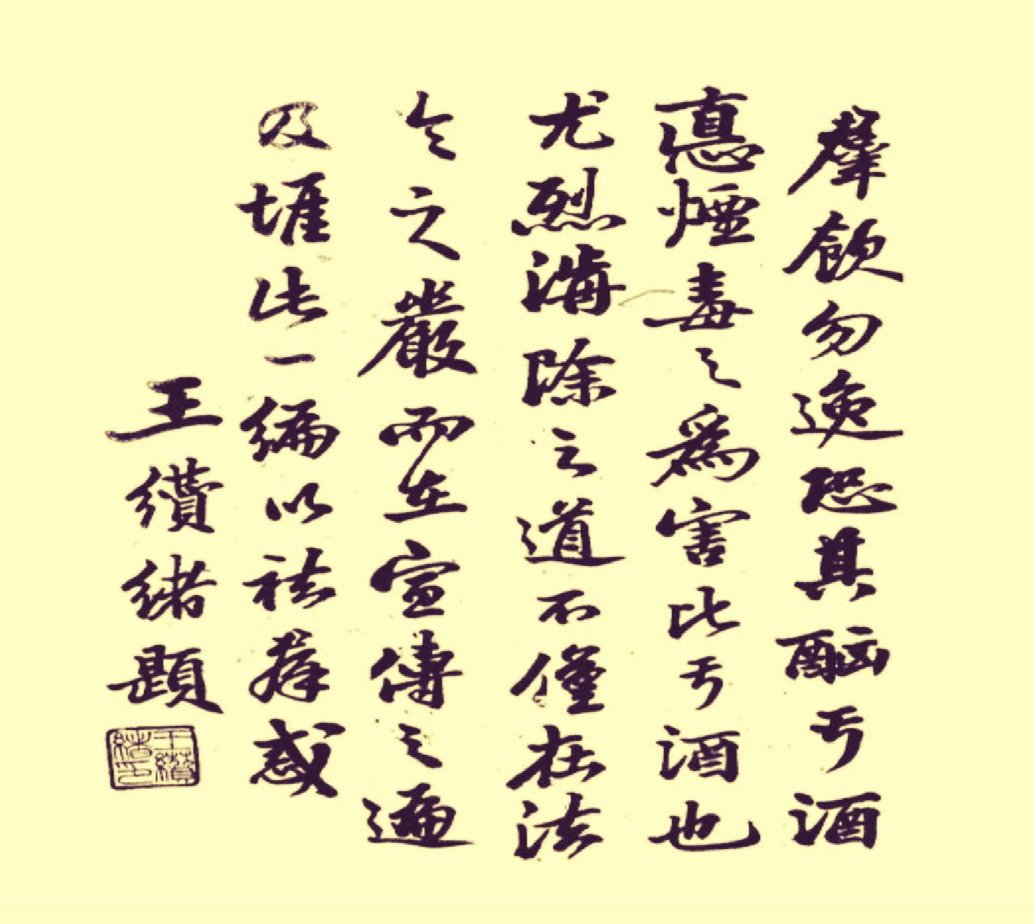 羣飲勿逸恐其酗于酒
悳煙毒之爲害比于酒也
尤烈湔除之道不僅在法
令之嚴而在宣傳之遍
及此一編以祛羣惑
王纘緒題
王纘緒印